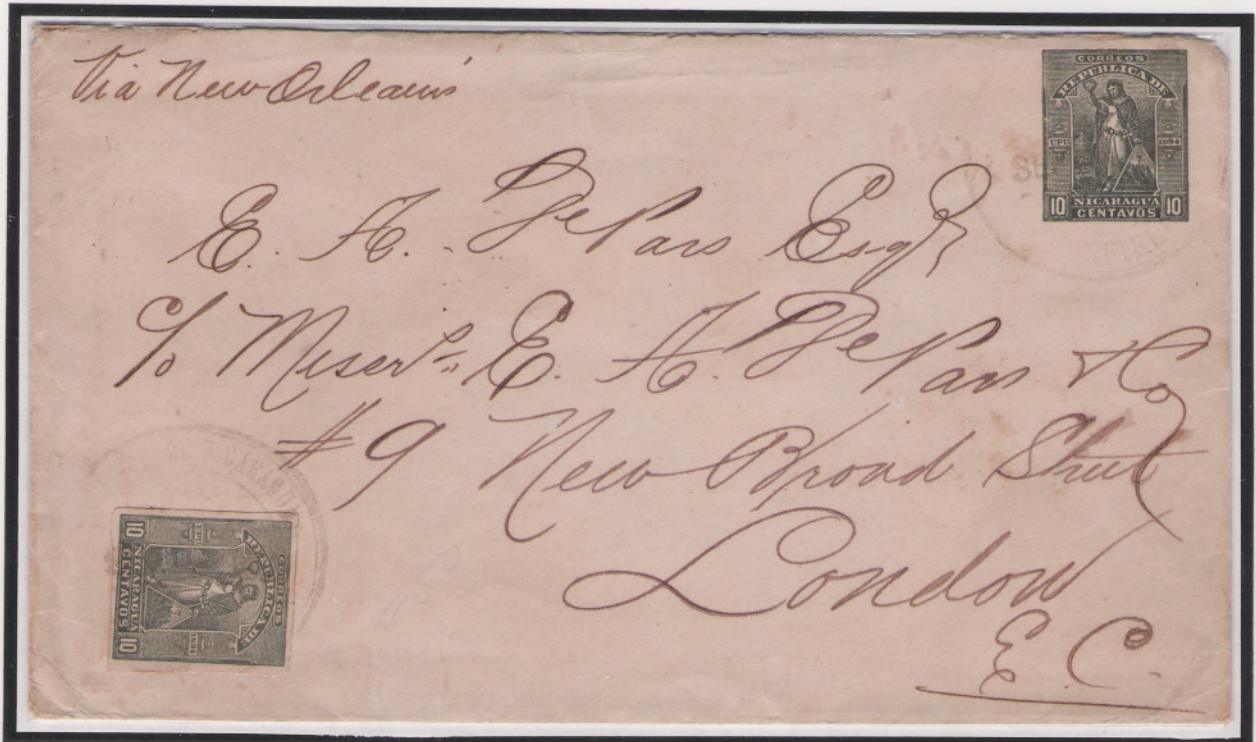 Via New Orleans
CORREOS
REPUBLICA DE
UPU 1894
10 NICARAGUA 10
CENTAVOS
E. A. DePass Esqr
c/o Messrs. E. A. DePass & Co
#9 New Broad Street
London
E. C.
CORREOS
REPUBLICA DE
UPU 1894
10 NICARAGUA 10
CENTAVOS